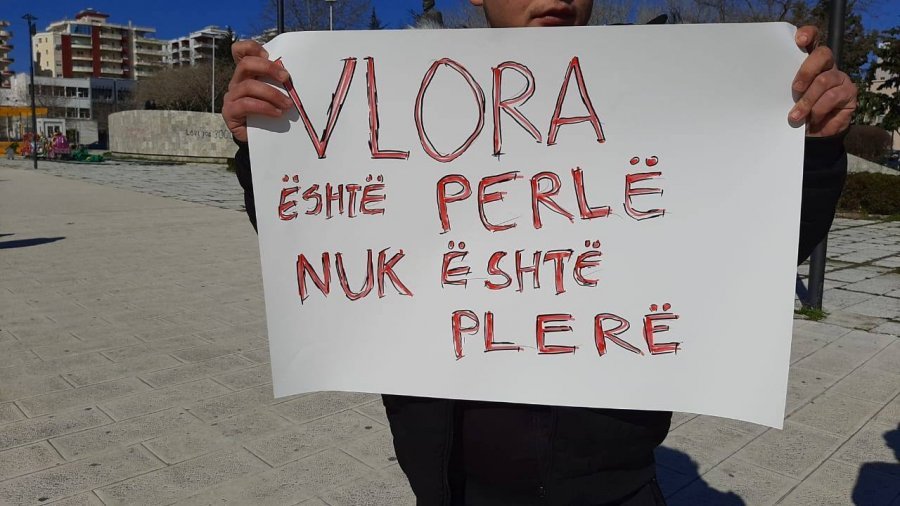 VLORA
ËSHTË PERLË
NUK ËSHTË
PLERË